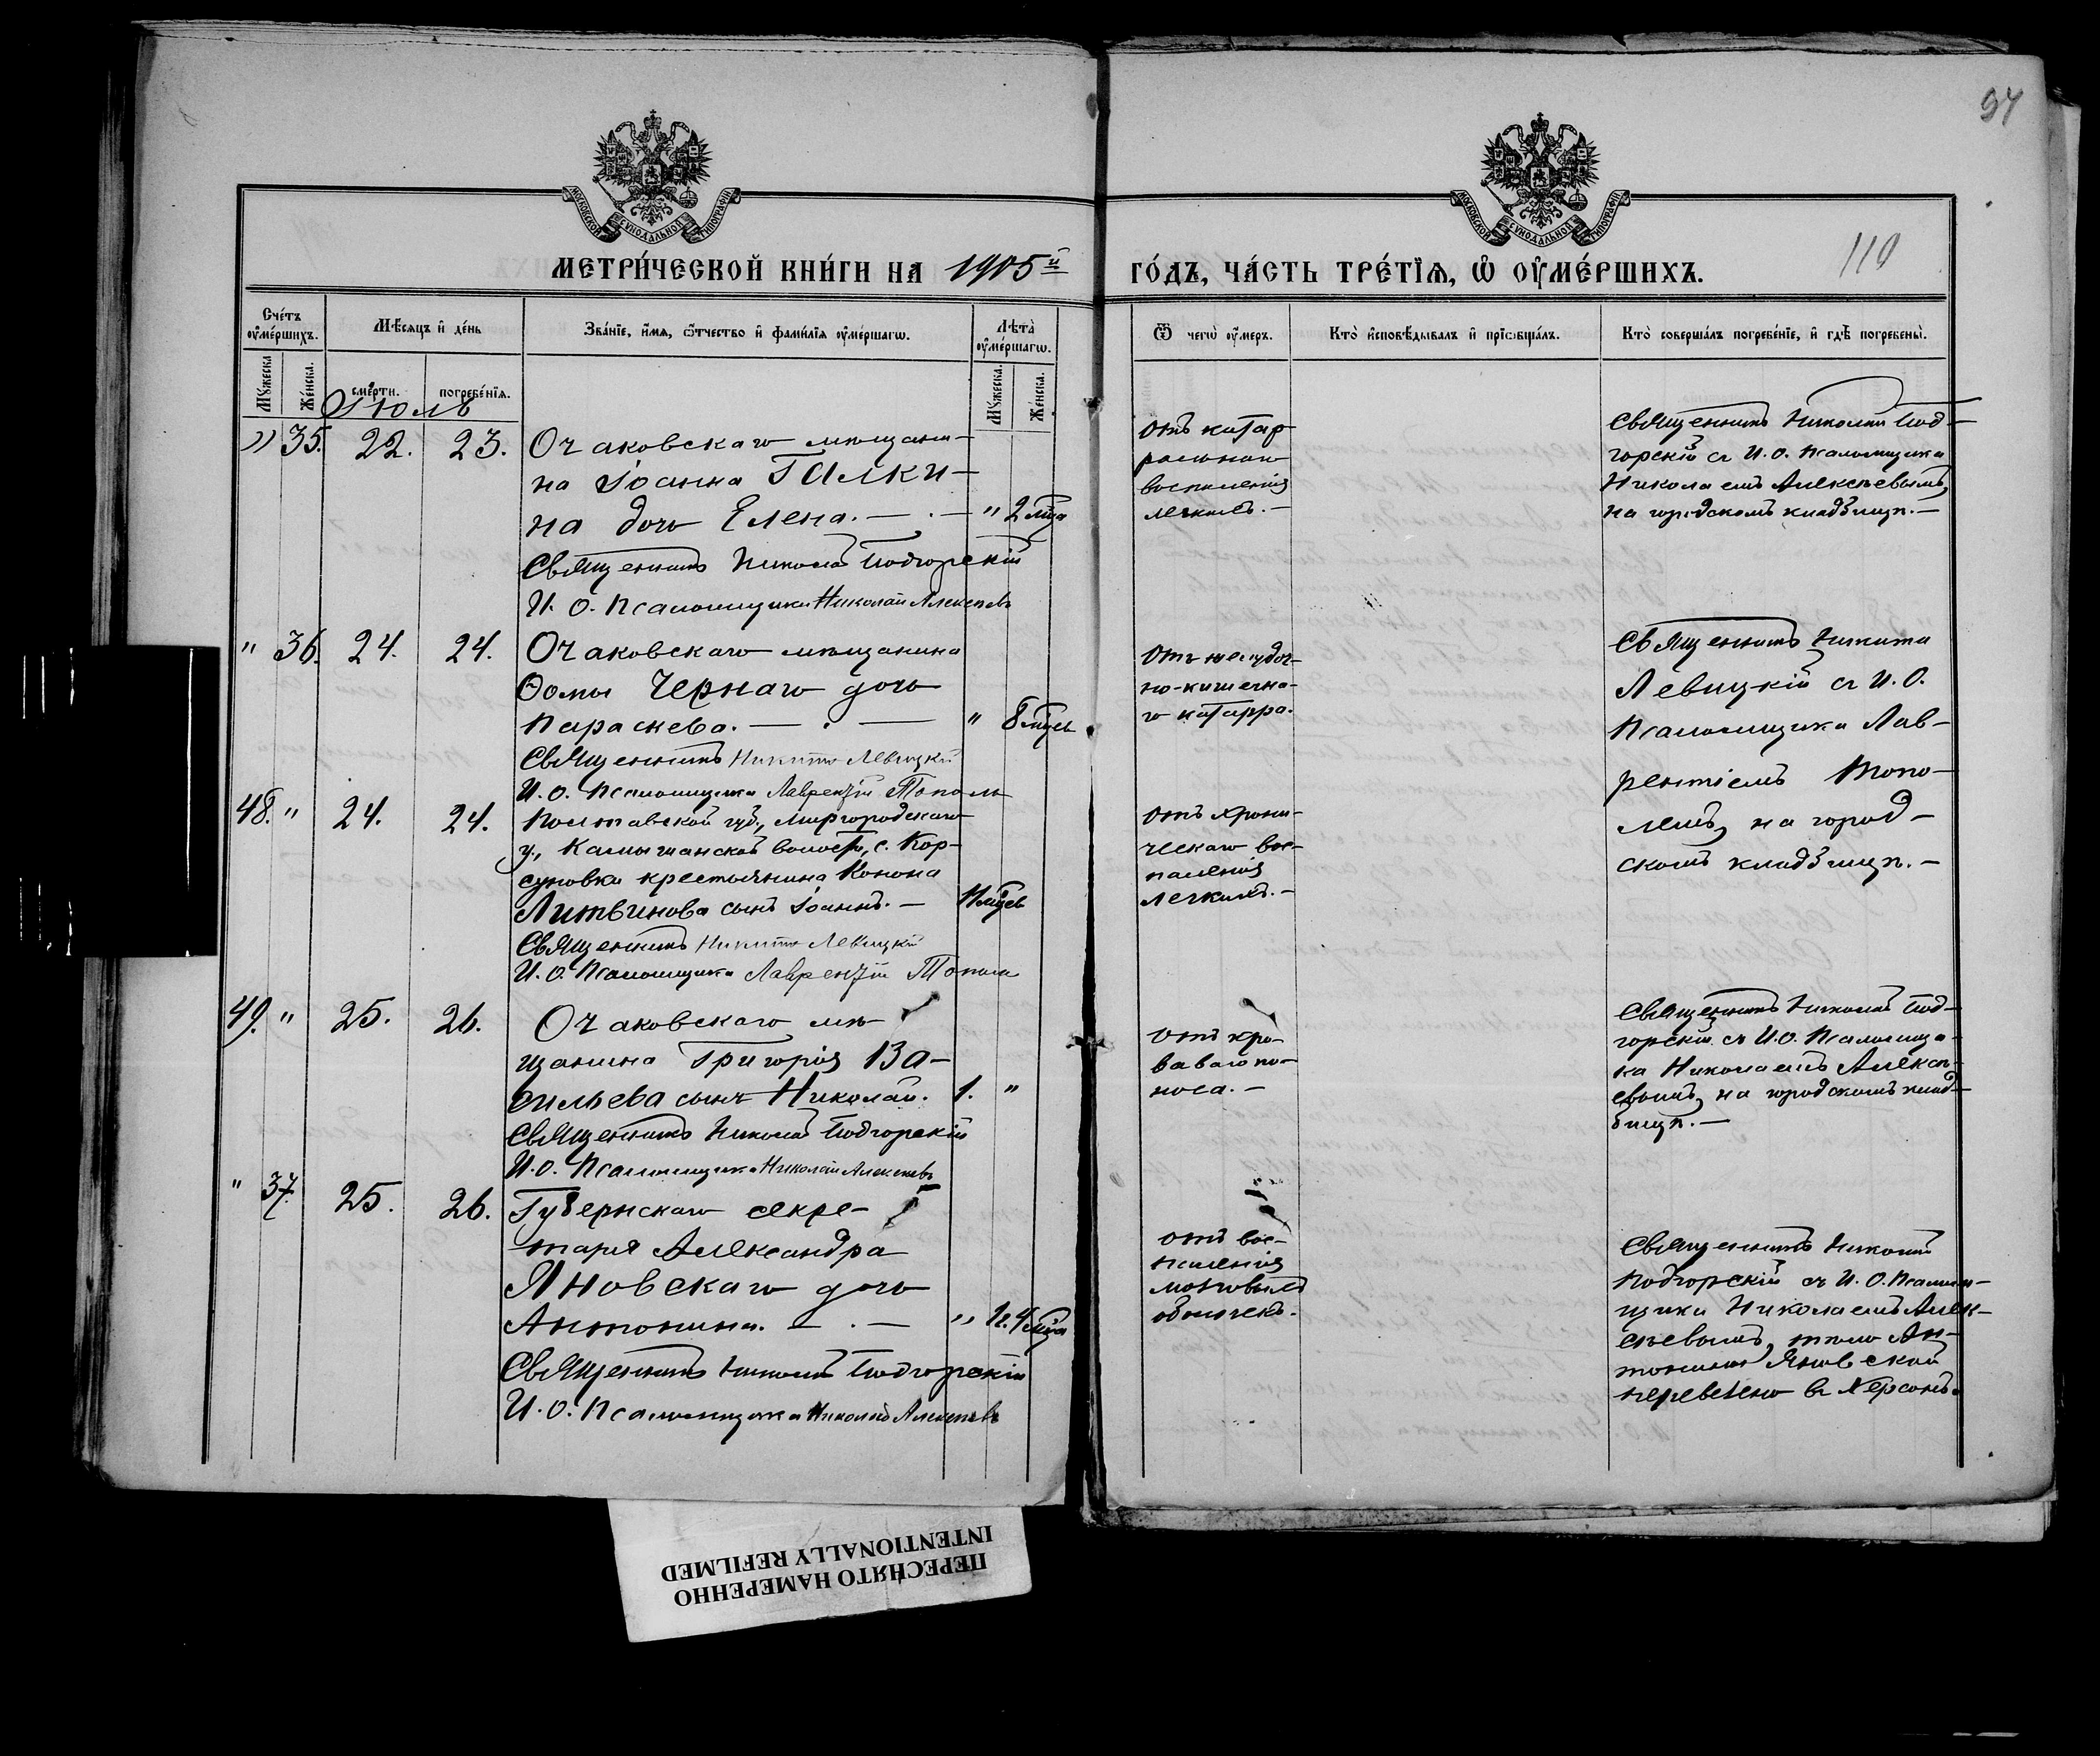 94
110
МОСКОВСКОЙ СѴНОДАЛЬНОЙ ТИПОГРАФІИ
МОСКОВСКОЙ СѴНОДАЛЬНОЙ ТИПОГРАФІИ
МЕТРИ́ЧЕСКОЙ КНИ́ГИ НА 1905й
ГО́ДЪ, ЧА́СТЬ ТРЕ́ТІѦ, Ѡ҆ ОУ҆МЕ́РШИХЪ.
Сче́тъ оу҆ме́ршихъ.
Мꙋ́жеска
Же́нска.
Мѣ́сѧцъ и҆ де́нь
сме́рти.
погребе́нїѧ.
Зва́нїе, и҆́мѧ, ѻ҆́тчество и҆ фами́лїѧ оу҆ме́ршагѡ.
Лѣ́та оу҆ме́ршагѡ.
Мꙋ́жеска.
Же́нска.
Ѿ чегѡ̀ оу҆́меръ.
Кто̀ и҆сповѣ́дывалъ и҆ прїѡбща́лъ.
Кто̀ соверша́лъ погребе́нїе, и҆ гдѣ̀ погребены̀.
Іюль
" 35. 22. 23. Очаковскаго мѣщани-
на Іоанна Галки-
на дочь Елена. — . — " 2 лѣта
Священникъ Николай Подгорскій
И. О. Псаломщика Николай Алексѣевъ
отъ катар
ральнаго
воспаленія
легкихъ. —
Священникъ Николай Под-
горскій съ И. О. Псаломщика
Николаемъ Алексѣевымъ,
на городскомъ кладбищѣ. —
" 36. 24. 24. Очаковскаго мѣщанина
Ѳомы Чернаго дочь
Параскева. — . — " 8 мѣсц
Священникъ Никита Левицкій
И. О. Псаломщика Лаврентій Тополь
отъ желудоч-
но-кишечна-
го катарра.
Священникъ Никита
Левицкій съ И. О.
Псаломщика Лав-
рентіемъ Топо-
лемъ, на город-
скомъ кладбищѣ. —
48. " 24. 24. Полтавской губ., Миргородскаго
у., Камышанской волости, с. Кор-
суновки крестьянина Конона
Литвинова сынъ Іоаннъ. — 11 мѣсц
Священникъ Никита Левицкій
И. О. Псаломщика Лаврентій Тополь
отъ хрони-
ческаго вос-
паленія
легкихъ. —
49. " 25. 26. Очаковскаго мѣ-
щанина Григорія Ва-
сильева сынъ Николай. 1. "
Священникъ Николай Подгорскій
И. О. Псаломщика Николай Алексѣевъ
отъ кро-
ваваго по-
носа. —
Священникъ Николай Под-
горскій съ И. О. Псаломщи-
ка Николаемъ Алексѣ-
евымъ, на городскомъ клад-
бищѣ. —
" 37. 25. 26. Губернскаго секре-
таря Александра
Яновскаго дочь
Антонина. — . — " 1г. 4 мѣса
Священникъ Николай Подгорскій
И. О. Псаломщика Николай Алексѣевъ
отъ вос-
паленія
мозговыхъ
оболочекъ.
Священникъ Николай
Подгорскій съ И. О. Псалом-
щика Николаемъ Алек-
сѣевымъ, тѣло Ан-
тонины Яновской
перевезено въ Херсонъ.
ПЕРЕСНЯТО НАМЕРЕННО
INTENTIONALLY REFILMED